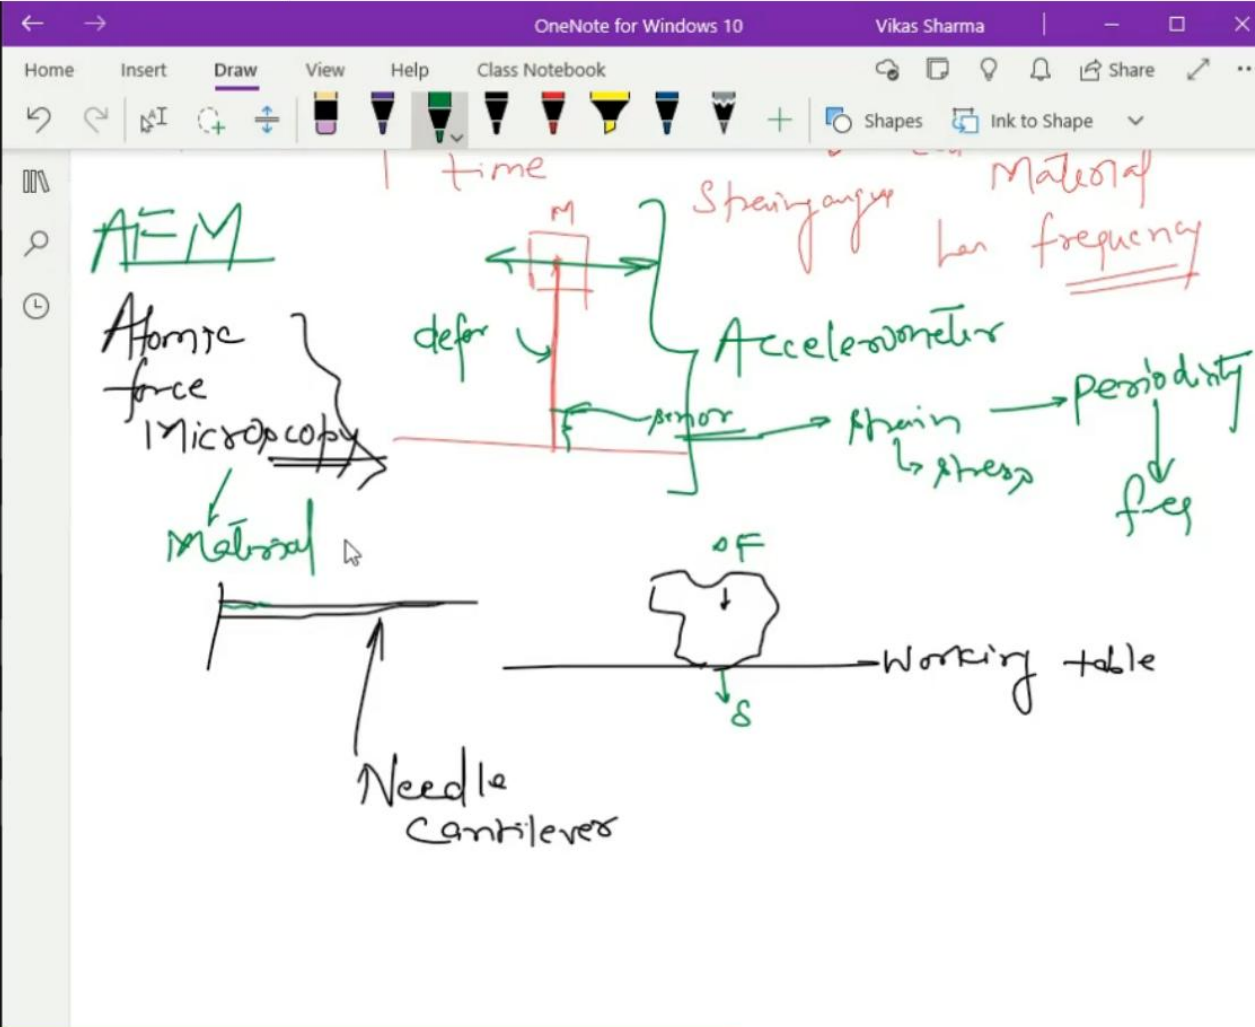 OneNote for Windows 10
Vikas Sharma
Home Insert Draw View Help Class Notebook
Share
Shapes
Ink to Shape
time
Material
frequency
AFM
M
Atomic
force
Microscopy
defor
Accelerometer
sensor
strain
stress
Periodicity
freq
Material
F
Working table
δ
Needle
Cantilever